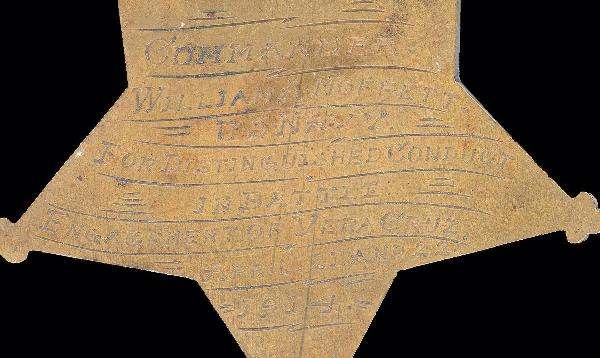 COMMANDER
WILLIAM A. MOFFETT
U.S. NAVY
FOR DISTINGUISHED CONDUCT
IN BATTLE
ENGAGEMENT OF VERA CRUZ,
APRIL 21 AND 22
1914.